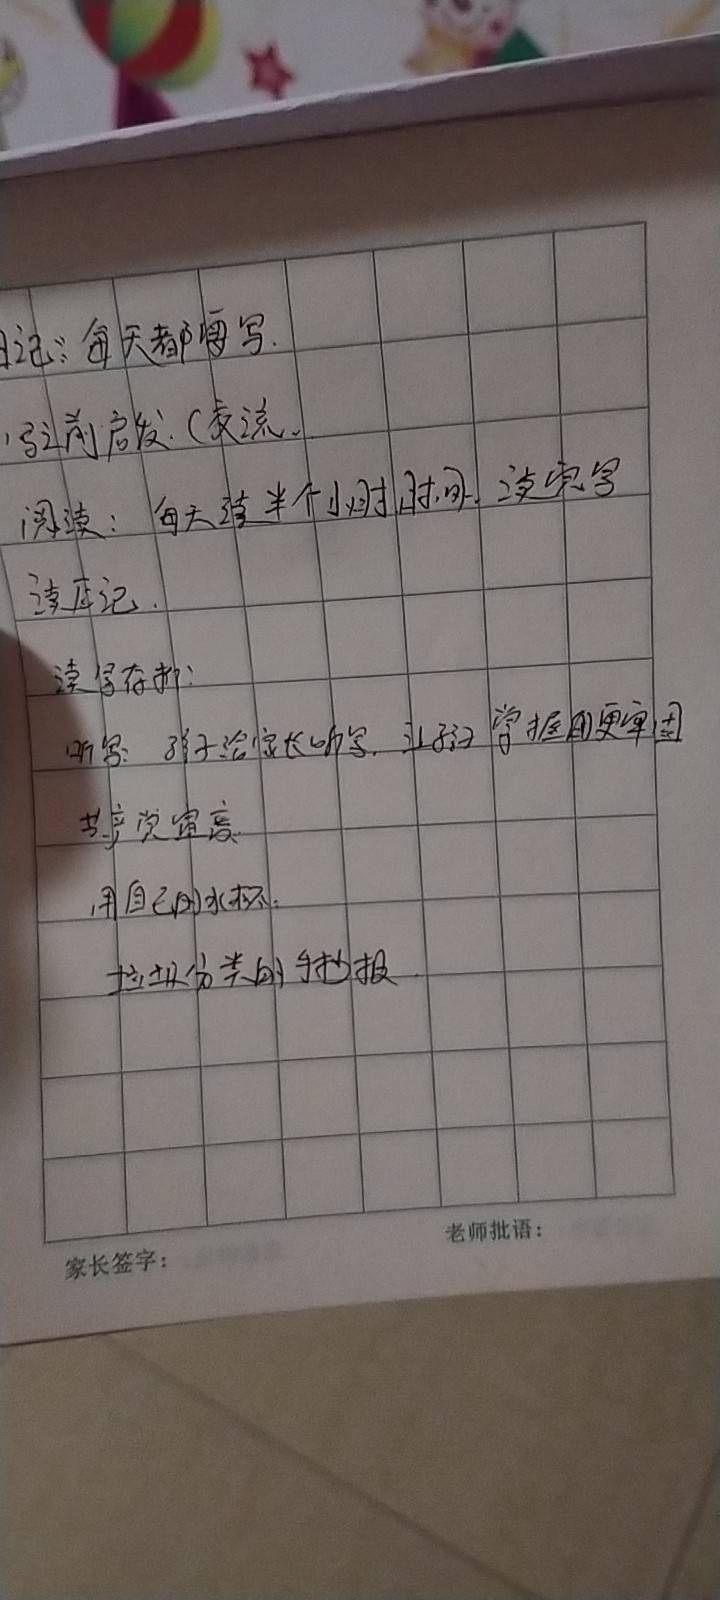 日记：每天都要写.
写之前启发.(交流。
阅读：每天读半个小时时间.读完写
读后记.
读写存折：
听写：孩子给家长听写.让孩子掌握的更牢固
共产党宣言
用自己的水杯.
垃圾分类的手抄报
家长签字：
老师批语：